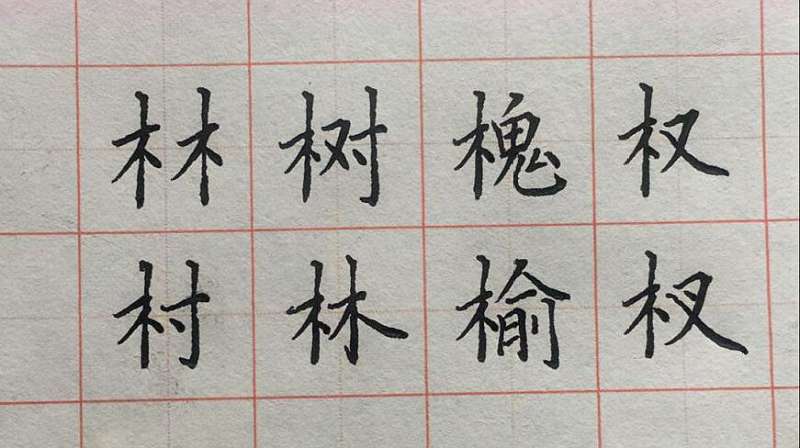 林树槐权
村林榆杈